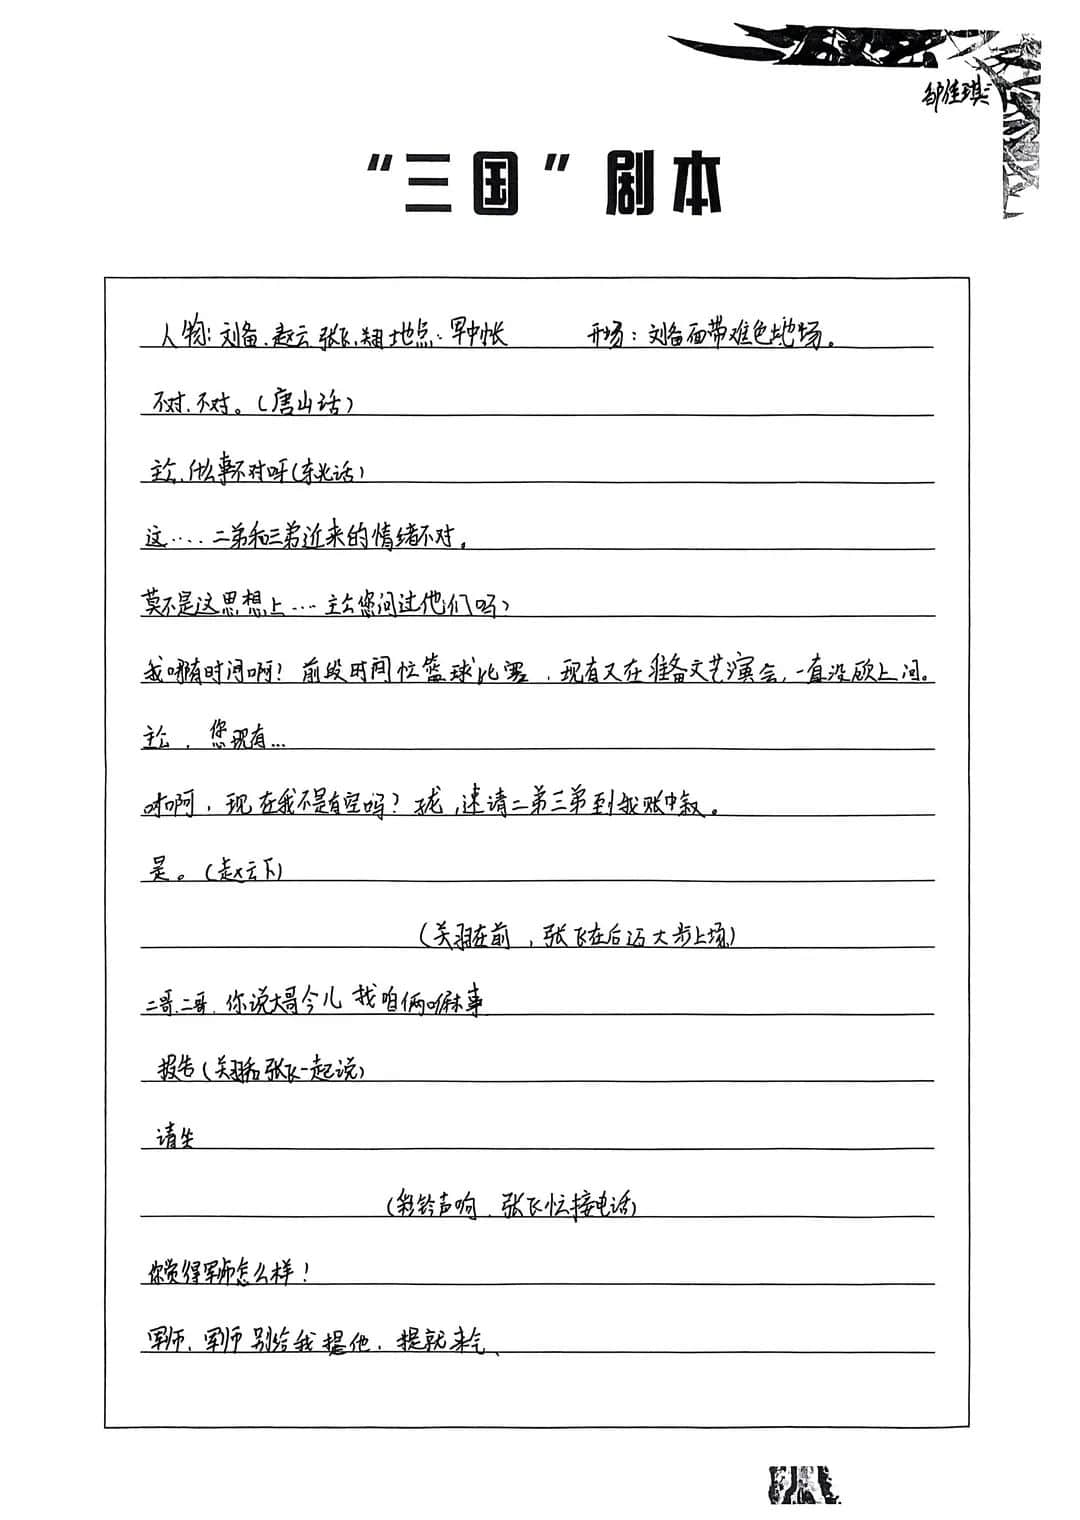 邹佳琪
“三国”剧本
人物：刘备、赵云、张飞、关羽 地点：军中帐 开场：刘备面带难色地上场。
不对、不对。（唐山话）
主公、什么事不对呀（东北话）
这....二弟和三弟近来的情绪不对。
莫不是这思想上...主公您问过他们吗？
我哪有时间啊！前段时间忙篮球比赛，现有又在准备文艺演会，一直没顾上问。
主公，您现有...
对啊，现在我不是有空吗？子龙，速请二弟三弟到我账中叙。
是。（赵云下）
（关羽在前，张飞在后迈大步上场）
二哥、二哥、你说大哥今儿找咱俩嘛事
报告（关羽和张飞一起说）
请坐
（铃声响、张飞忙接电话）
你觉得军师怎么样！
军师、军师别给我提他，提就来气、